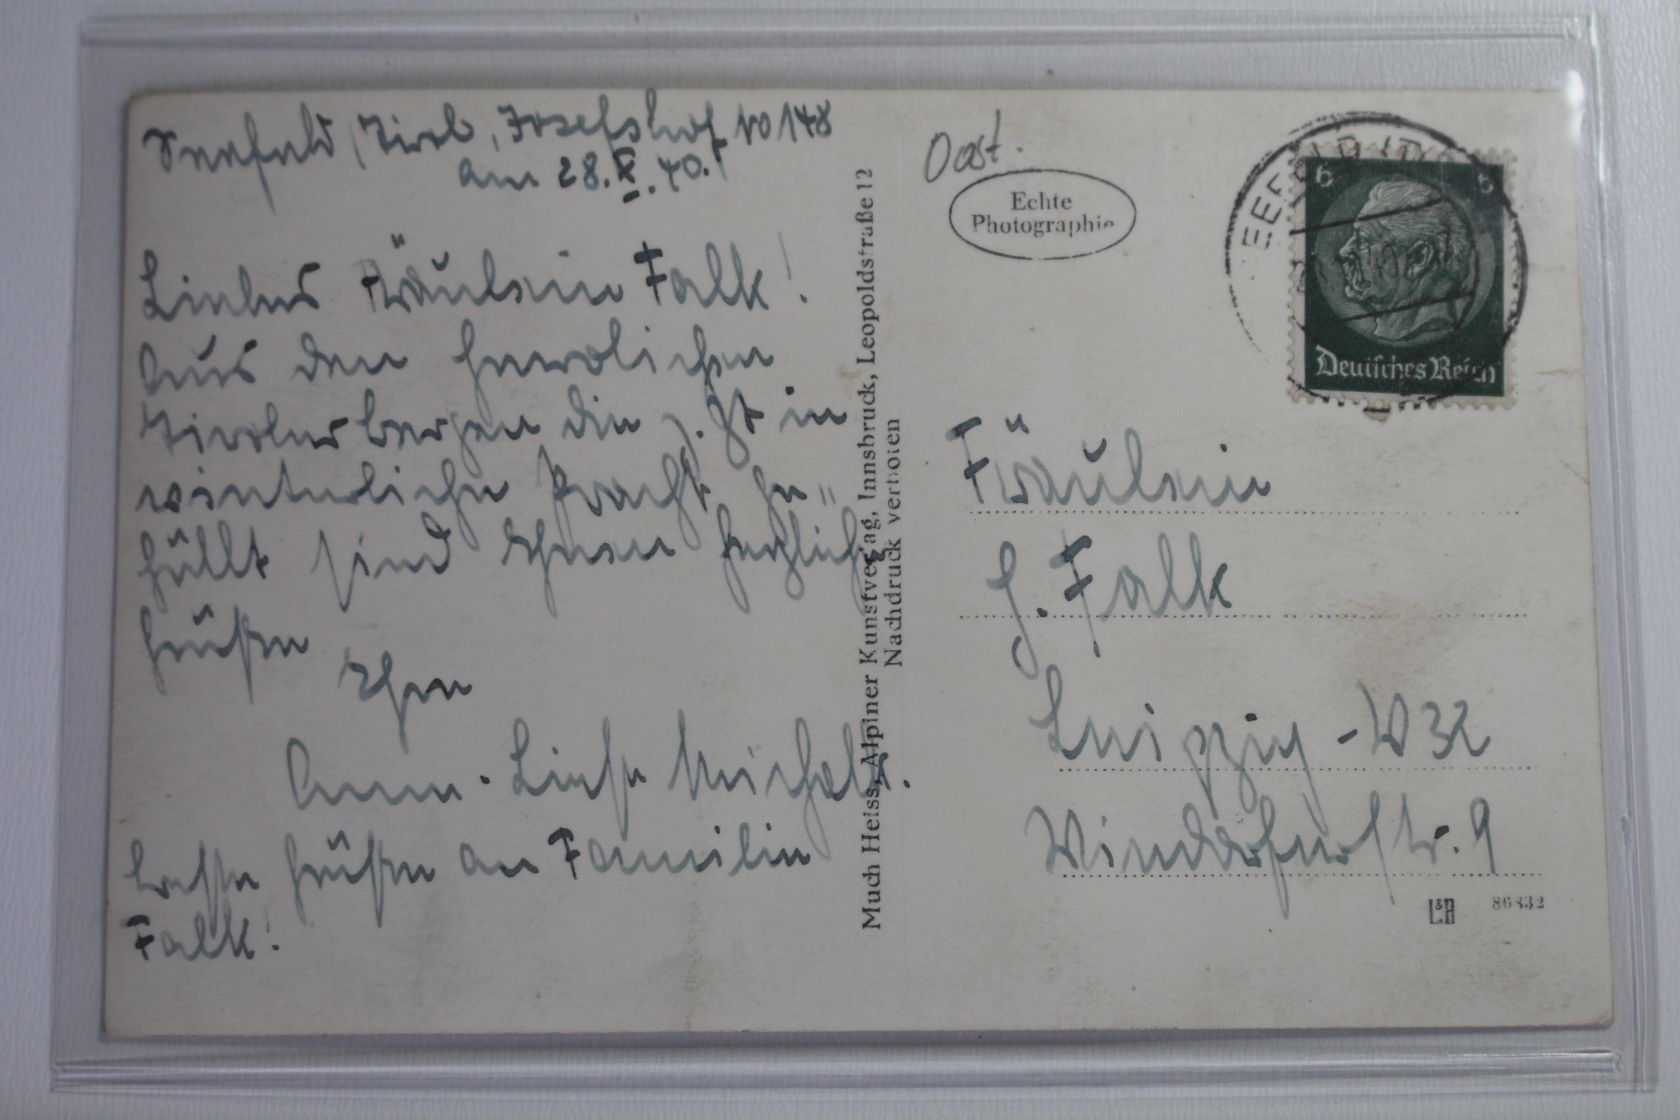 Seefeld/Tirol, Josefshof No 148
am 28.X.40.
Liebes Fräulein Falk!
Aus den herrlichen
Tirolerbergen die z. Zt in
winterliche Pracht ge=
hüllt sind Ihnen herzliche
Grüße
Ihre
Anne-Liese
Beste Grüße an Familie
Falk!
Much Heiss, Alpiner Kunstverlag, Innsbruck, Leopoldstraße 12
Nachdruck verboten
Oost.
Echte
Photographie
6 6
Deutsches Reich
Fräulein
G. Falk
Leipzig-W 32
Windorferstr. 9
86832